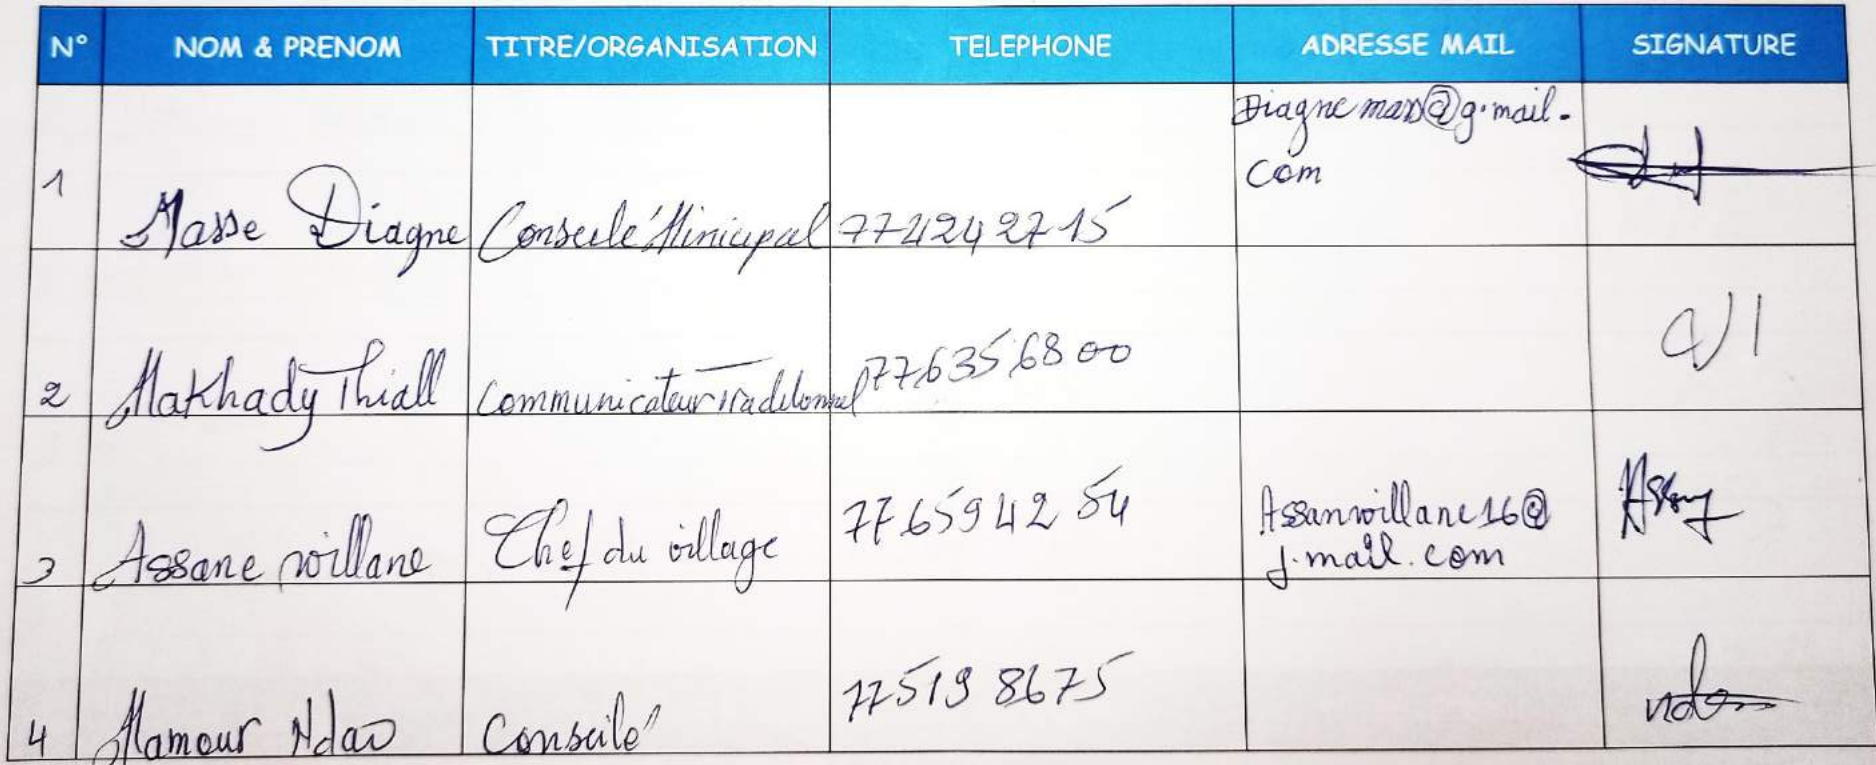 N° NOM & PRENOM TITRE/ORGANISATION TELEPHONE ADRESSE MAIL SIGNATURE
1 Masse Diagne Conseilé Minicipal 77 424 27 15 Diagne mas@g.mail.
com
2 Makhady Thiall Communicateur Traditonnel 77 635 68 00
3 Assane willane Chef du village 77 659 42 54 Assanwillane16@
j.mail.com
4 Mamour Ndao Conseilé 77 519 86 75